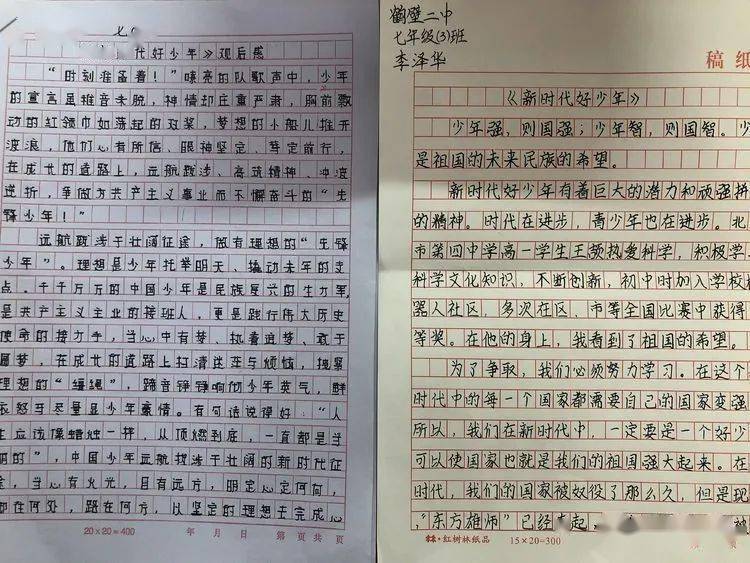 七
代好少年》观后感
“时刻准备着！”嘹亮的队歌声中，少年
的宣言虽稚音未脱，神情却庄重严肃，胸前飘
动的红领巾如荡起的双桨，梦想的小船儿推开
波浪，他们心有所信，眼神坚定，笃定前行，
在成长的道路上，远航跋涉、高筑精神、冲浪
逆折，争做为共产主义事业而不懈奋斗的“先
锋少年！”
远航跋涉于壮阔征途，做有理想的“先锋
少年”。理想是少年托举明天、撬动未年的支
点。千千万万的中国少年是民族复兴的生力军，
是共产主义主业的接班人，更是践行伟大历史
使命的接力手，当心中有梦、执着追梦、敢于
圆梦，在成长的道路上扫清迷茫与烦恼，拽紧
理想的“缰绳”，蹄音铮铮响彻少年英气，鲜
衣怒马尽量显少年豪情。有句话说得好：“人
生应该像蜡烛一样，从顶燃到底，一直都是
明的”，中国少年远航跋涉于壮阔的新时代征
途，当心有火光，目有远方，明定心定何向，
却在何处，路在何方，以坚定的理想去完成心
20×20=400 年 月 日 第 页 共 页
鹤壁二中
七年级(3)班
李泽华
稿纸
《新时代好少年》
少年强，则国强；少年智，则国智。少
是祖国的未来民族的希望。
新时代好少年有着巨大的潜力和顽强拼
的精神。时代在进步，青少年也在进步。北
市第四中学高一学生王颢热爱科学，积极学
科学文化知识，不断创新，初中时加入学校机
器人社区，多次在区、市等全国比赛中获得
等奖。在他的身上，我看到了祖国的希望。
为了争取，我们必须努力学习。在这个
时代中的每一个国家都需要自己的国家变强
所以，我们在新时代中，一定要是一个好少
可以使国家也就是我们的祖国强大起来。在
时代，我们的国家被奴役了那么久，但是现
“东方雄师”已经
红树林纸品 15×20=300